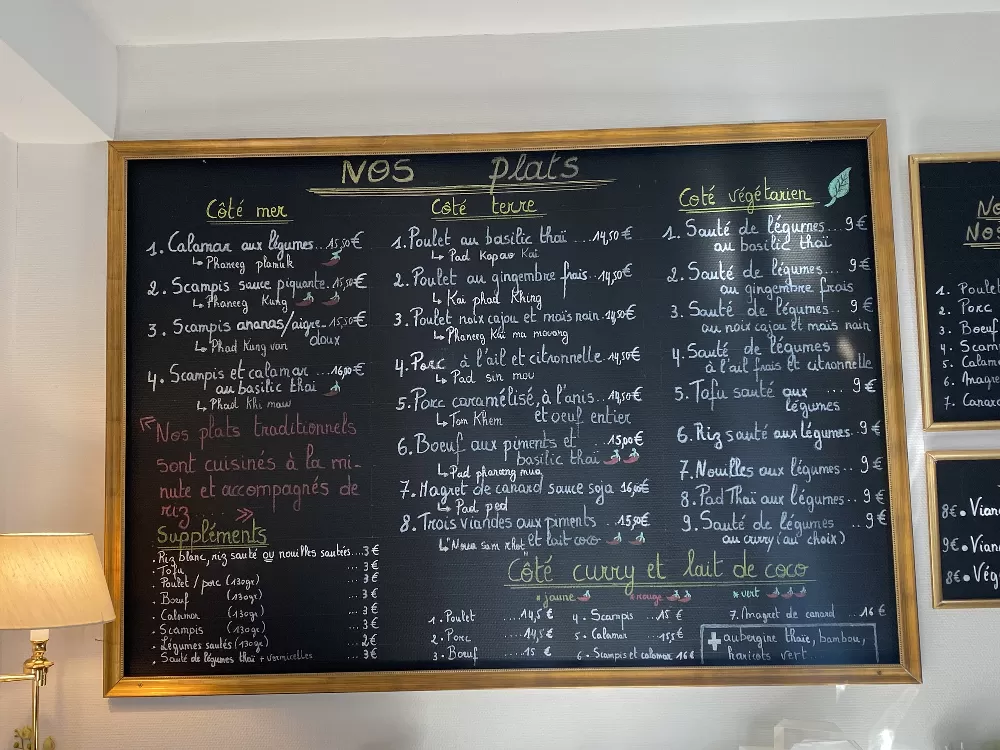 Nos plats
Côté mer
1. Calamar aux légumes...15,50€
↳ Phaneeg plamuk
2. Scampis sauce piquante.15,50€
↳ Phaneeg Kung
3. Scampis ananas/aigre...15,50€
doux
↳ Phad Kung van
4. Scampis et calamar ...16,00€
au basilic thaï
↳ Phaid Khi maw
Nos plats traditionnels
sont cuisinés à la mi-
nute et accompagnés de
riz..... »
Suppléments
. Riz blanc, riz sauté ou nouilles sautées....3€
. Tofu ... 3€
. Poulet / porc (130gr) ... 3€
. Bœuf (130gr) ... 3€
. Calamar (130gr) ... 3€
. Scampis (130gr) ... 3€
. Légumes sautés (130gr) ... 2€
. Sauté de légumes thaï + vermicelles ... 3€
Coté terre
1. Poulet au basilic thaï ...14,50€
↳ Pad Kapao Kai
2. Poulet au gingembre frais..14,50€
↳ Kai phad Khing
3. Poulet noix cajou et maïs nain.14,50€
↳ Phaneeg Kai ma mouang
4. Porc à l'ail et citronnelle.14,50€
↳ Pad sin mou
5. Porc caramélisé, à l'anis...14,50€
↳ Tom Khem et oeuf entier
6. Boeuf aux piments et ...15,00€
basilic thaï
↳ Pad pharang mua
7. Magret de canard sauce soja 16,00€
↳ Pad ped
8. Trois viandes aux piments ...15,50€
↳ Noua sam rhot et lait coco
Coté végétarien
1. Sauté de légumes... 9€
au basilic thaï
2. Sauté de légumes... 9€
au gingembre frais
3. Sauté de légumes.. 9€
au noix cajou et maïs nain
4. Sauté de légumes
à l'ail frais et citronnelle
5. Tofu sauté aux ... 9€
légumes
6. Riz sauté aux légumes. 9€
7. Nouilles aux légumes.. 9€
8. Pad Thaï aux légumes.. 9€
9. Sauté de légumes ... 9€
au curry (au choix)
Côté curry et lait de coco
* jaune * rouge * vert
1. Poulet ....14,5 €
2. Porc ....14,5€
3. Bœuf ...15 €
4. Scampis ....15 €
5. Calamar ...15,5€
6. Scampis et calamar 16€
7. Magret de canard ... 16€
+ aubergine thaïe, bambou,
haricots vert
No
Nos
1. Poulet
2. Porc
3. Boeuf
4. Scam
5. Calam
6. Magre
7. Canard
8€. Vian
9€. Vian
8€. Vég